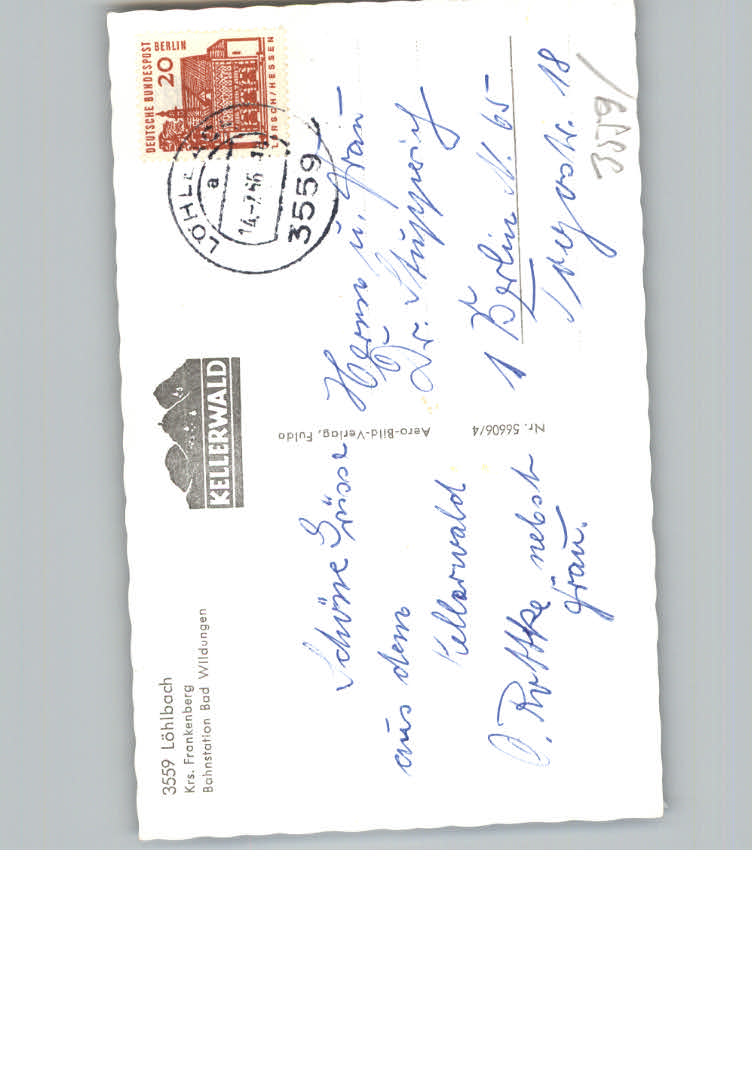 3559 Löhlbach
Krs. Frankenberg
Bahnstation Bad Wildungen
KELLERWALD
DEUTSCHE BUNDESPOST BERLIN
20
LORSCH/HESSEN
a
3559
Schöne Grüsse
aus dem
Kellerwald
O. Rottke nebst
Frau.
Aero-Bild-Verlag, Fulda
Nr. 56606/4
Herrn u. Frau
Dr. Stupperich
1 Berlin N. 65
18
3559/